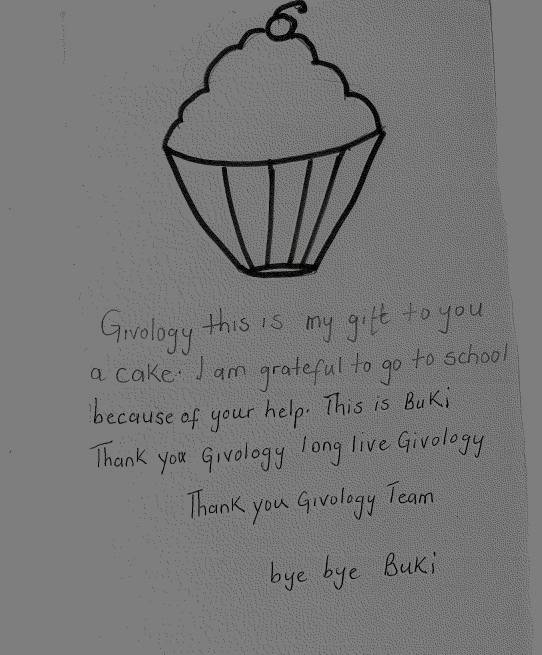 Givology this is my gift to you
a cake. I am grateful to go to school
because of your help. This is Buki
Thank you Givology long live Givology
Thank you Givology Team
bye bye Buki